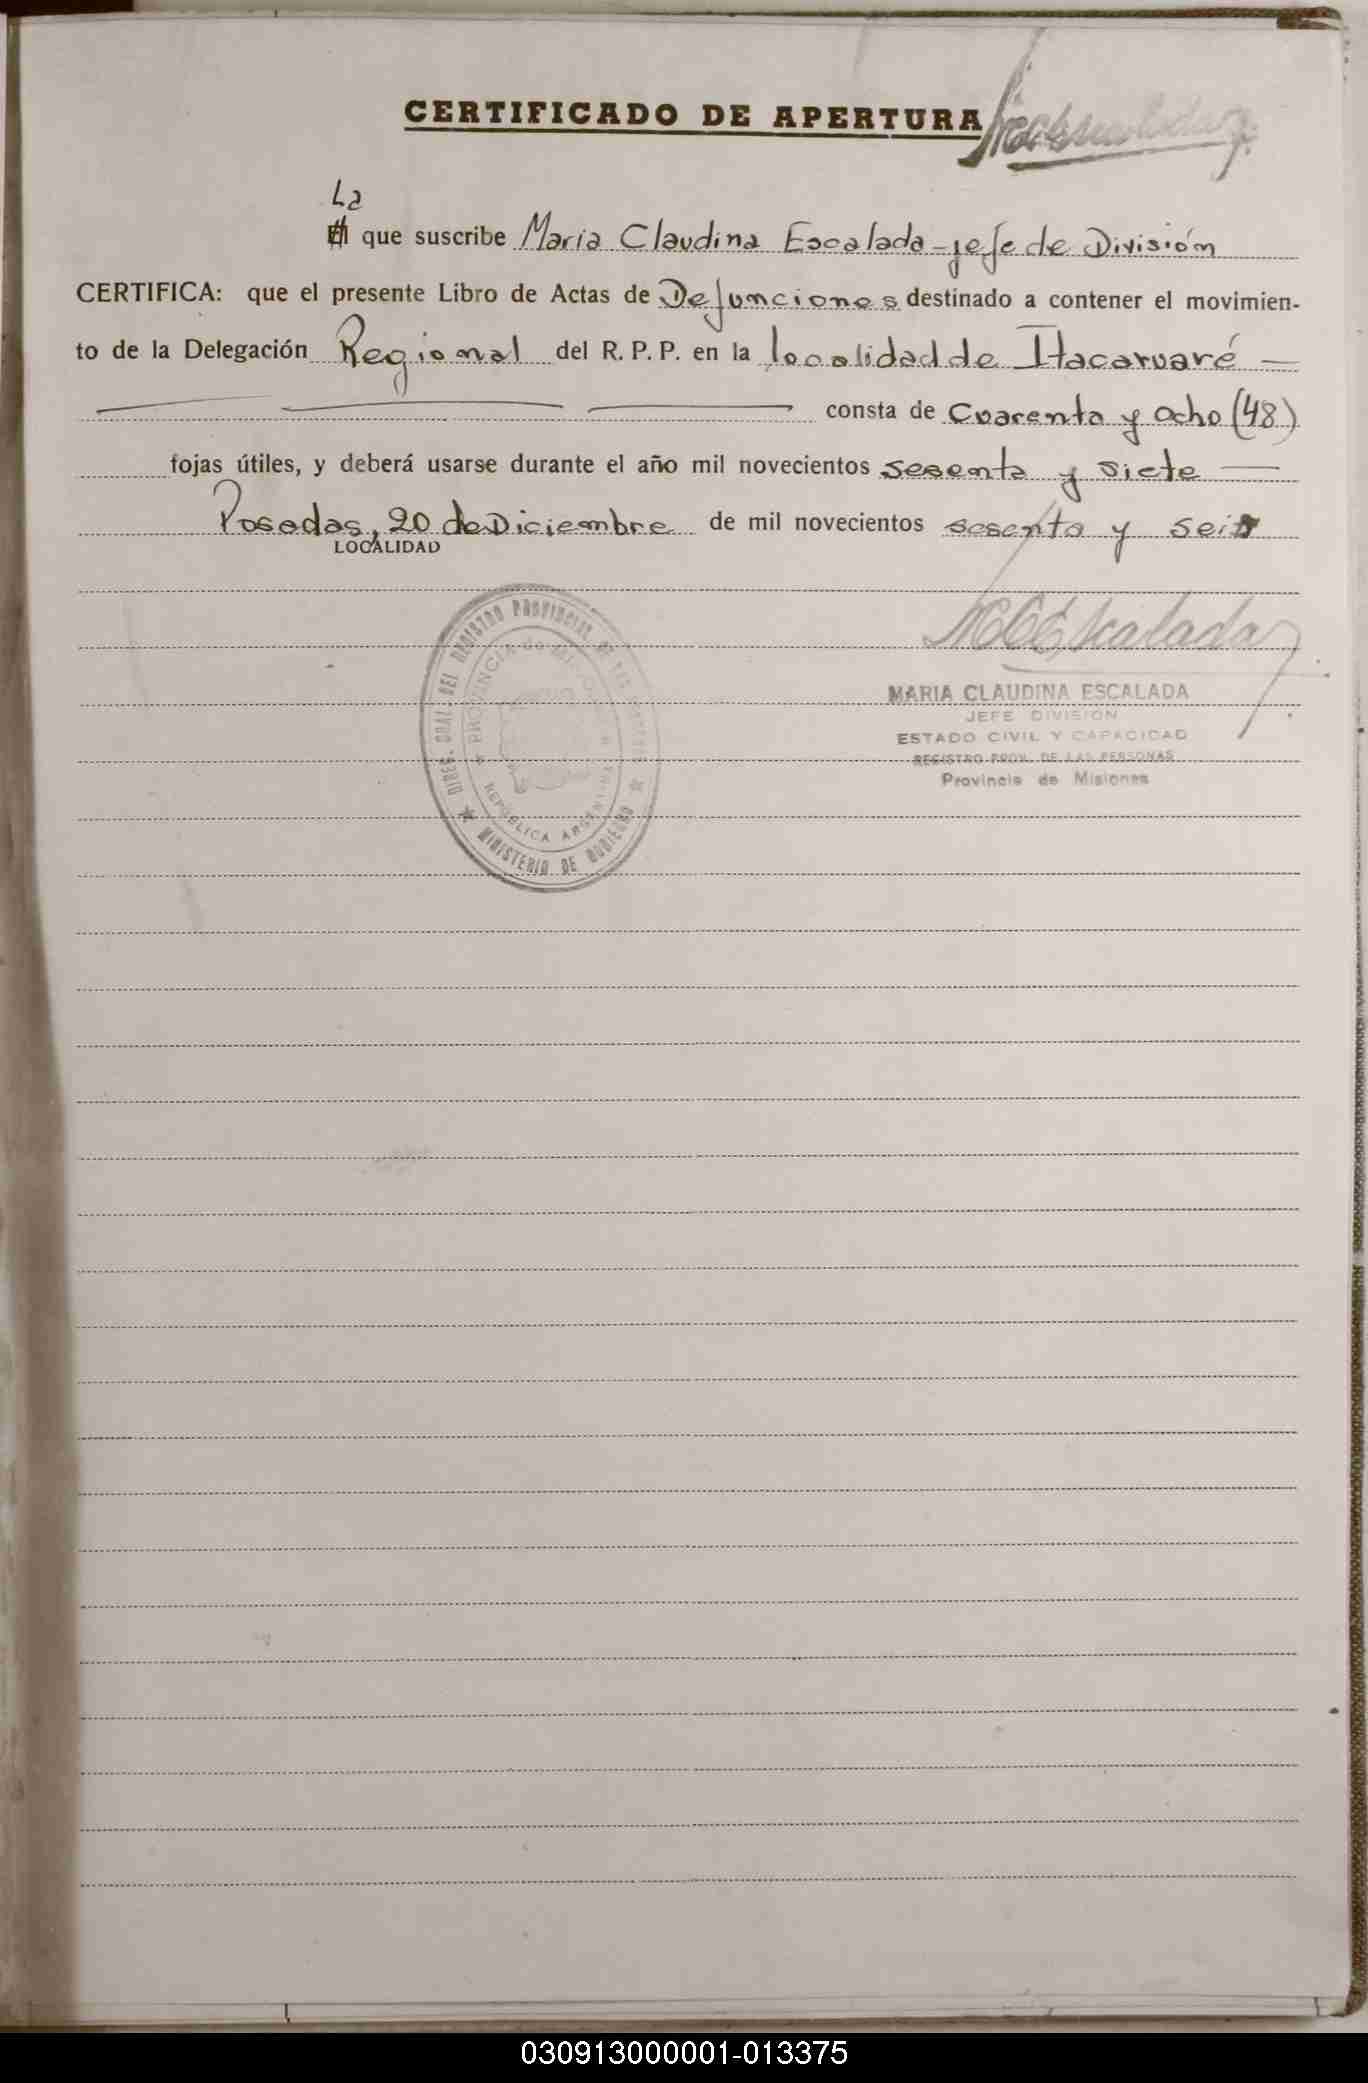 CERTIFICADO DE APERTURA
La
El que suscribe Maria Claudina Escalada - jefe de División
CERTIFICA: que el presente Libro de Actas de Defunciones destinado a contener el movimien-
to de la Delegación Regional del R. P. P. en la localidad de Itacaruaré —
consta de Cuarenta y Ocho (48)
fojas útiles, y deberá usarse durante el año mil novecientos sesenta y siete —
Posadas, 20 de Diciembre de mil novecientos sesenta y seis
LOCALIDAD
MCEscalada
MARIA CLAUDINA ESCALADA
JEFE DIVISION
ESTADO CIVIL Y CAPACIDAD
REGISTRO PROV. DE LAS PERSONAS
Provincia de Misiones
DIREC. GRAL. DEL REGISTRO PROVINCIAL DE LAS PERSONAS
PROVINCIA de MISIONES
REPÚBLICA ARGENTINA
MINISTERIO DE GOBIERNO
030913000001-013375